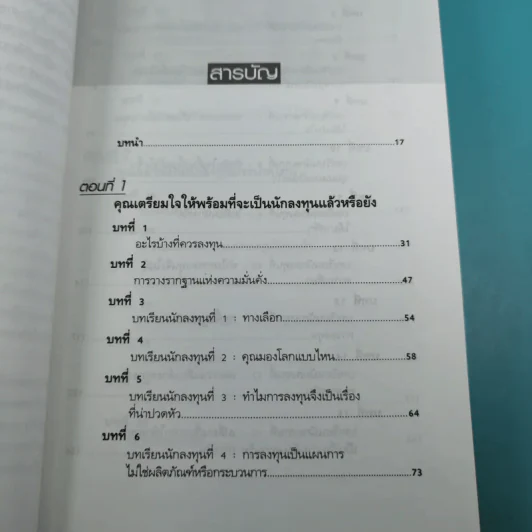 สารบัญ
บทนำ 17
ตอนที่ 1
คุณเตรียมใจให้พร้อมที่จะเป็นนักลงทุนแล้วหรือยัง
บทที่ 1
อะไรบ้างที่ควรลงทุน 31
บทที่ 2
การวางรากฐานแห่งความมั่นคั่ง 47
บทที่ 3
บทเรียนนักลงทุนที่ 1 : ทางเลือก 54
บทที่ 4
บทเรียนนักลงทุนที่ 2 : คุณมองโลกแบบไหน 58
บทที่ 5
บทเรียนนักลงทุนที่ 3 : ทำไมการลงทุนจึงเป็นเรื่อง
ที่น่าปวดหัว 64
บทที่ 6
บทเรียนนักลงทุนที่ 4 : การลงทุนเป็นแผนการ
ไม่ใช่ผลิตภัณฑ์หรือกระบวนการ 73